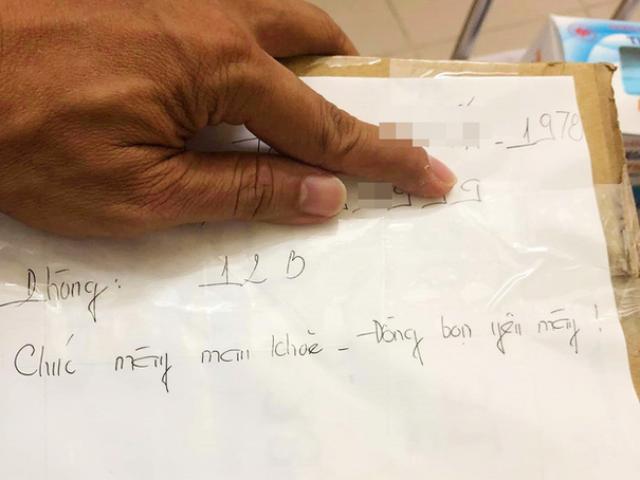 - 1978
Phòng: 12B
Chúc mấy man khỏe - Đồng bọn yêu mấy!